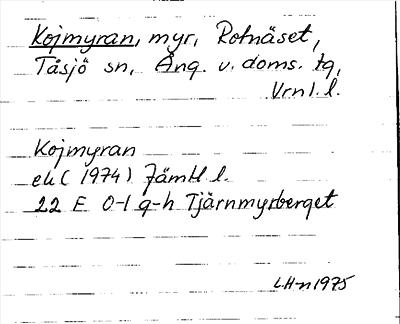 Kojmyran, myr, Rotnäset,
Tåsjö sn, Ång. v. doms. tg,
Vrnl. l.
Kojmyran
ek (1974) Jämtl l.
22 E 0-1 g-h Tjärnmyrberget
LH-n 1975